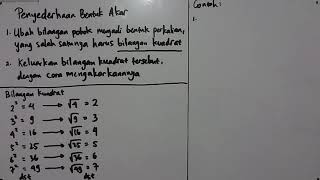 Penyederhaan Bentuk Akar
1. Ubah bilangan pokok menjadi bentuk perkalian,
yang salah satunya harus bilangan kuadrat
2. Keluarkan bilangan kuadrat tersebut,
dengan cara mengakarkannya
Bilangan kuadrat
2² = 4 → √4 = 2
3² = 9 → √9 = 3
4² = 16 → √16 = 4
5² = 25 → √25 = 5
6² = 36 → √36 = 6
7² = 49 → √49 = 7
dst dst
Contoh:
1.